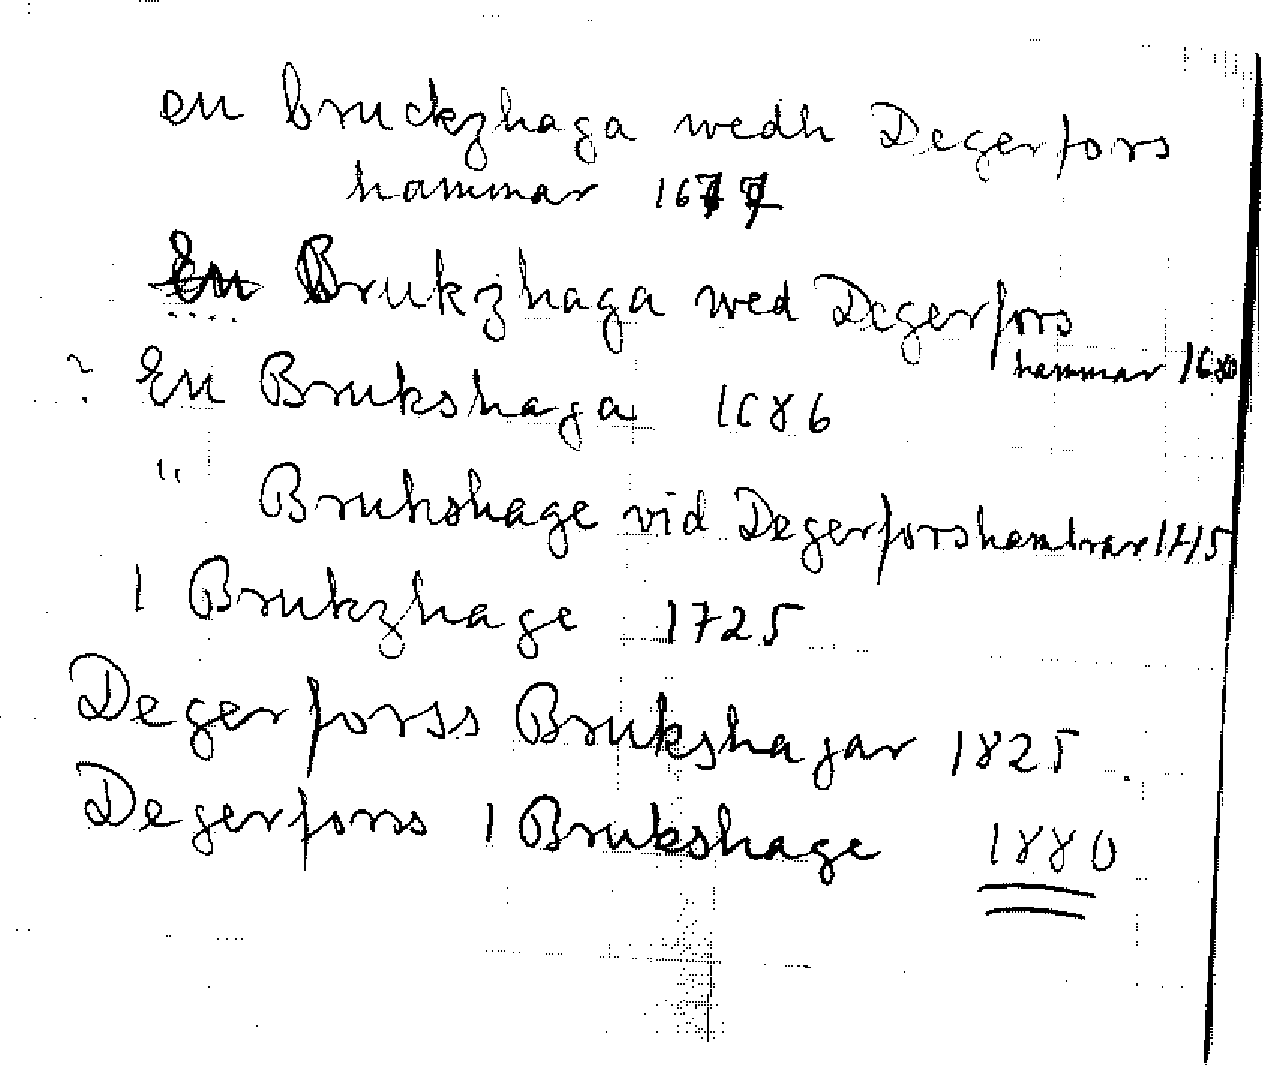 en bruckzhaga wedh Degerfors
hammar 1677
En Brukzhaga wed Degerfors
hammar 1680
? En Brukshaga 1686
" Brukshage vid Degerforshambrar 1715
1 Brukzhage 1725
Degerforss Brukshagar 1825
Degerforss 1 Brukshage 1880